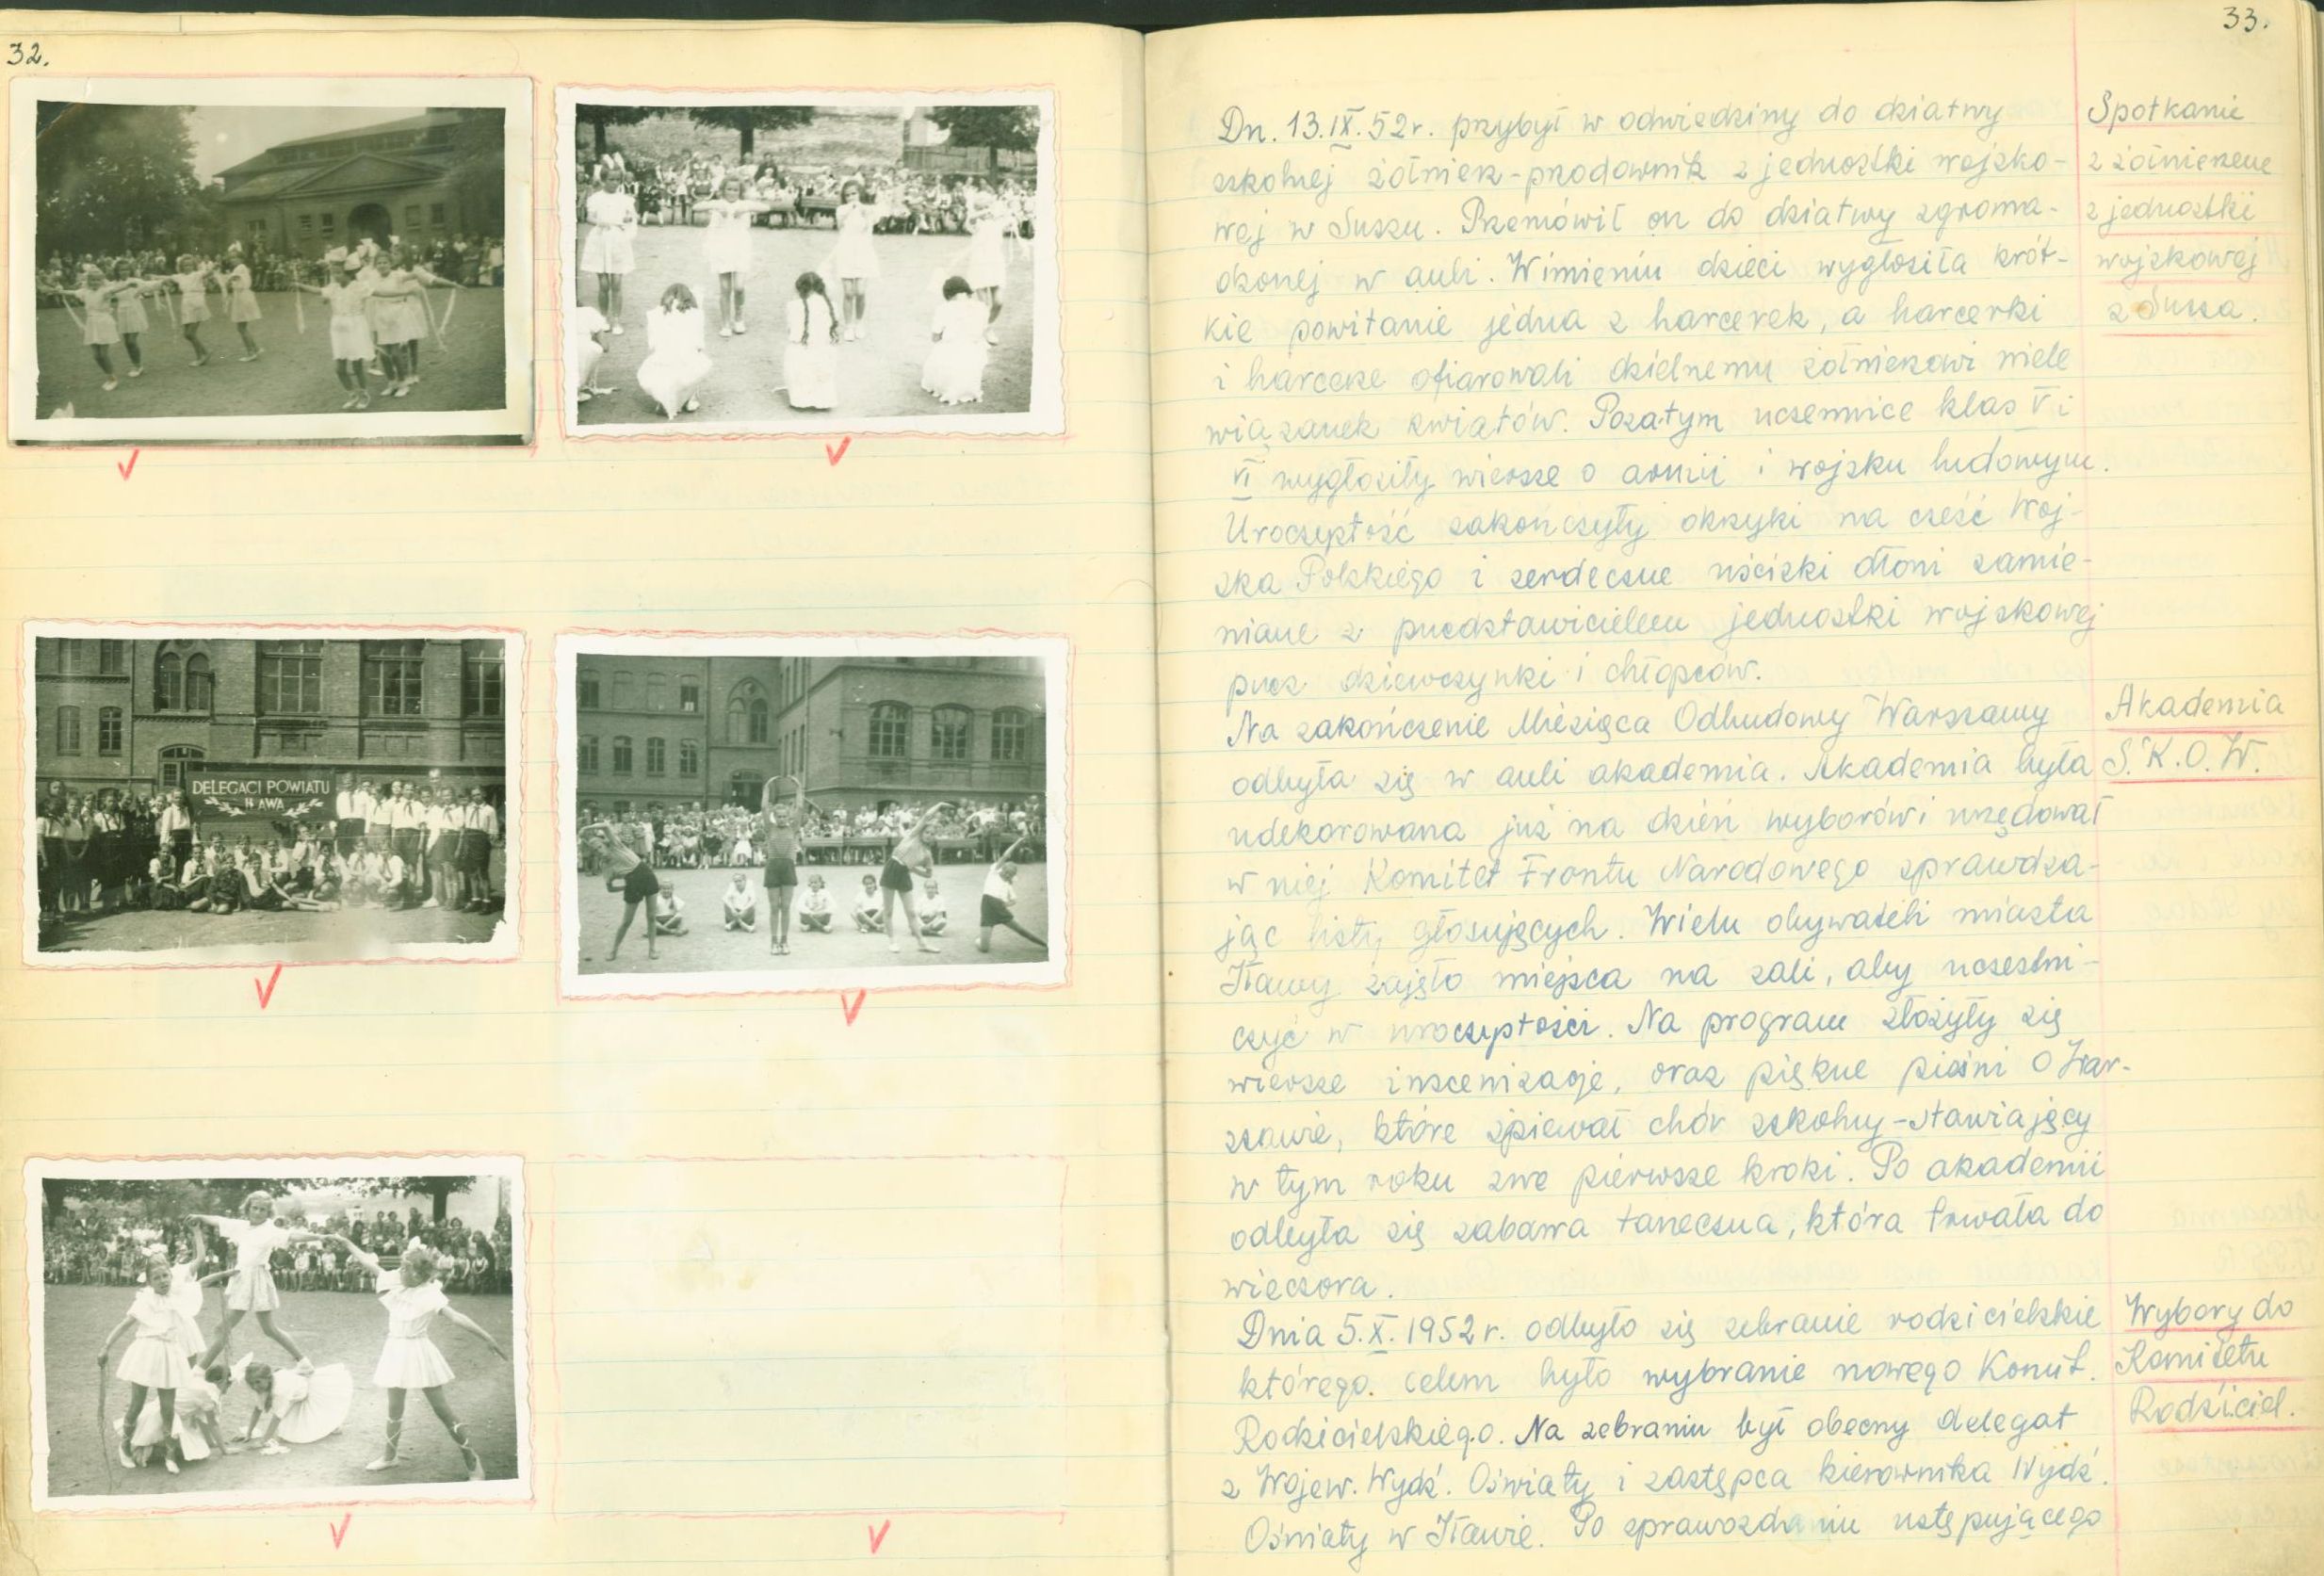 32.
DELEGACI POWIATU
IŁAWA
33.
Dn. 13.IX.52r. przybył w odwiedziny do dziatwy
szkolnej żołnierz-przodownik z jednostki wojsko-
wej w Suszu. Przemówił on do dziatwy zgroma-
dzonej w auli. W imieniu dzieci wygłosiła krót-
kie powitanie jedna z harcerek, a harcerki
i harcerze ofiarowali dzielnemu żołnierzowi wiele
wiązanek kwiatów. Pozatym uczennice klas V i
VI wygłosiły wiersze o armii i wojsku ludowym.
Uroczystość zakończyły okrzyki na cześć Woj-
ska Polskiego i serdeczne uściski dłoni zamie-
niane z przedstawicielem jednostki wojskowej
przez dziewczynki i chłopców.
Na zakończenie Miesiąca Odbudowy Warszawy
odbyła się w auli akademia. Akademia była
udekorowana już na dzień wyborów i urzędował
w niej Komitet Frontu Narodowego sprawdza-
jąc listy głosujących. Wielu obywateli miasta
Iławy zajęło miejsca na sali, aby uczestni-
czyć w uroczystości. Na program złożyły się
wiersze inscenizacje, oraz piękne pieśni o War-
szawie, które śpiewał chór szkolny-stawiający
w tym roku swe pierwsze kroki. Po akademii
odbyła się zabawa taneczna, która trwała do
wieczora.
Dnia 5.X.1952r. odbyło się zebranie rodzicielskie
którego celem było wybranie nowego Komit.
Rodzicielskiego. Na zebraniu był obecny delegat
z Wojew. Wydź. Oświaty i zastępca kierownika Wydź.
Oświaty w Iławie. Po sprawozdaniu ustępującego
Spotkanie
z żołnierzem
z jednostki
wojskowej
z Susza.
Akademia
S.K.O.W.
Wybory do
Komitetu
Rodziciel.